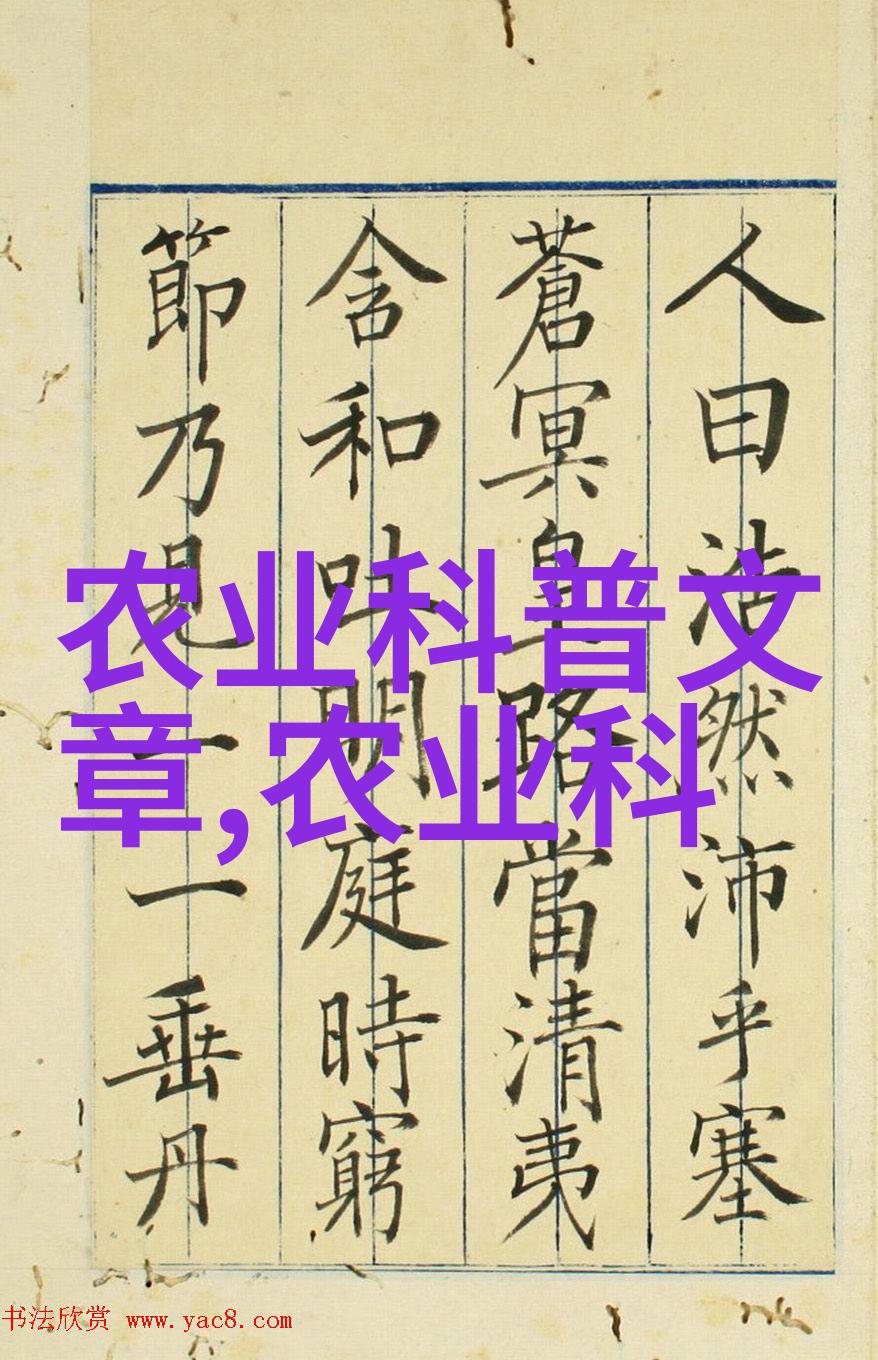 人曰浩然沛乎塞
蒼冥皇路當清夷
含和吐明庭時窮
節乃見一一垂丹
农业科普文
章,农业科
书法欣赏 www.yac8.com